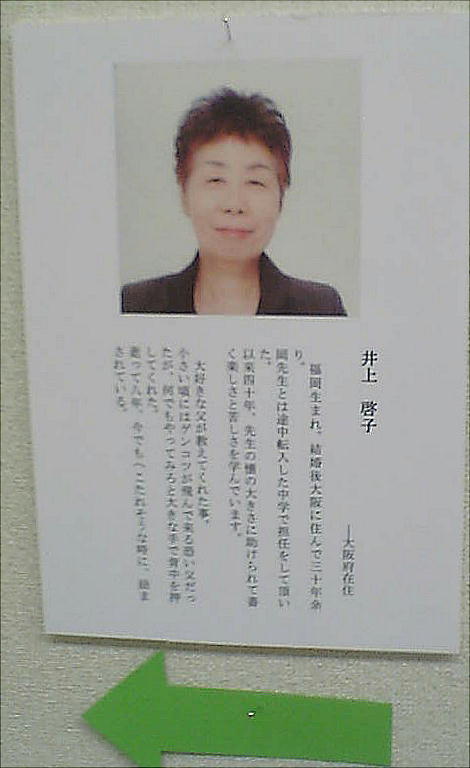 井上 啓子
―大阪府在住
福岡生まれ。結婚後大阪に住んで三十年余
り。
岡先生とは途中転入した中学で担任をして頂い
た。
以来四十年、先生の懐の大きさに助けられて書
く楽しさと苦しさを学んでいます。
大好きな父が教えてくれた事。
小さい頃にはゲンコツが飛んで来る恐い父だっ
たが、何でもやってみろと大きな手で背中を押
してくれた。
逝って八年、今でもへこたれそうな時に、励ま
されている。